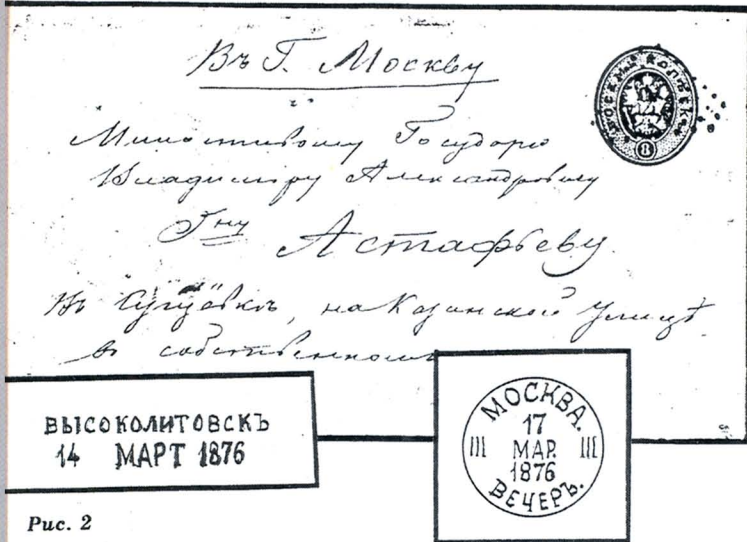 Въ Г. Москву
Милостивому Государю
Владиміру Александровичу
Гну Астафьеву
въ Сущёвкѣ, на Казанской улицѣ
въ собственномъ
ВОСЕМЬ КОПѢЕКЪ
8
ВЫСОКОЛИТОВСКЪ
14 МАРТ 1876
МОСКВА.
17
III МАР. III
1876
ВЕЧЕРЪ.
Рис. 2